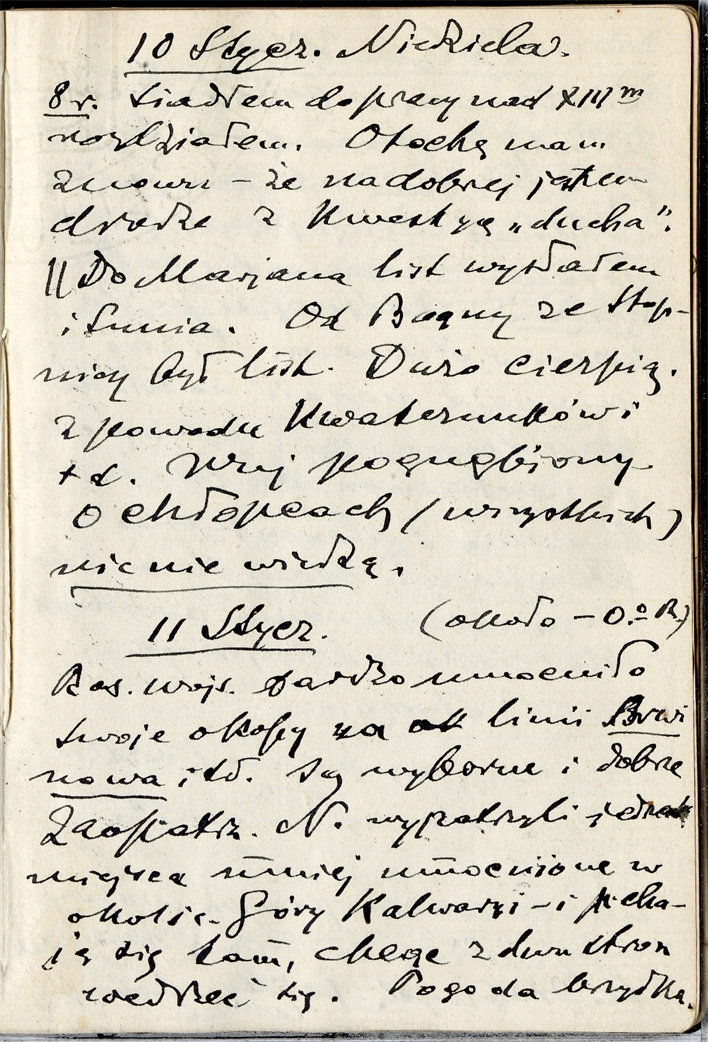 10 Stycz. Niedziela.
8 r. Siadłem do pracy nad XIII m
rozdziałem. Otuchę mam
znowu – że na dobrej jestem
drodze z kwestyą „ducha”.
|| Do Marjana list wysłałem
i Lunia. Od Bagny ze Stop-
nicy był list. Dużo cierpią.
z powodu kwaterunków i
t d. Wuj pognębiony
o chłopcach (wszystkich)
nic nie wiedzą.
11 Stycz. (około – 0.º R.)
Ros. wojs. bardzo umocniło
swoje okopy na linii Brwi
nowa itd. Są wyborne i dobrze
zaopatrz. N. wypatrzyli jednak
miejsca mniej umocnione w
okolic. Góry Kalwaryi – i pcha-
ją się tam, chcąc z dwu stron
wedrzeć się. Pogoda brzydka.